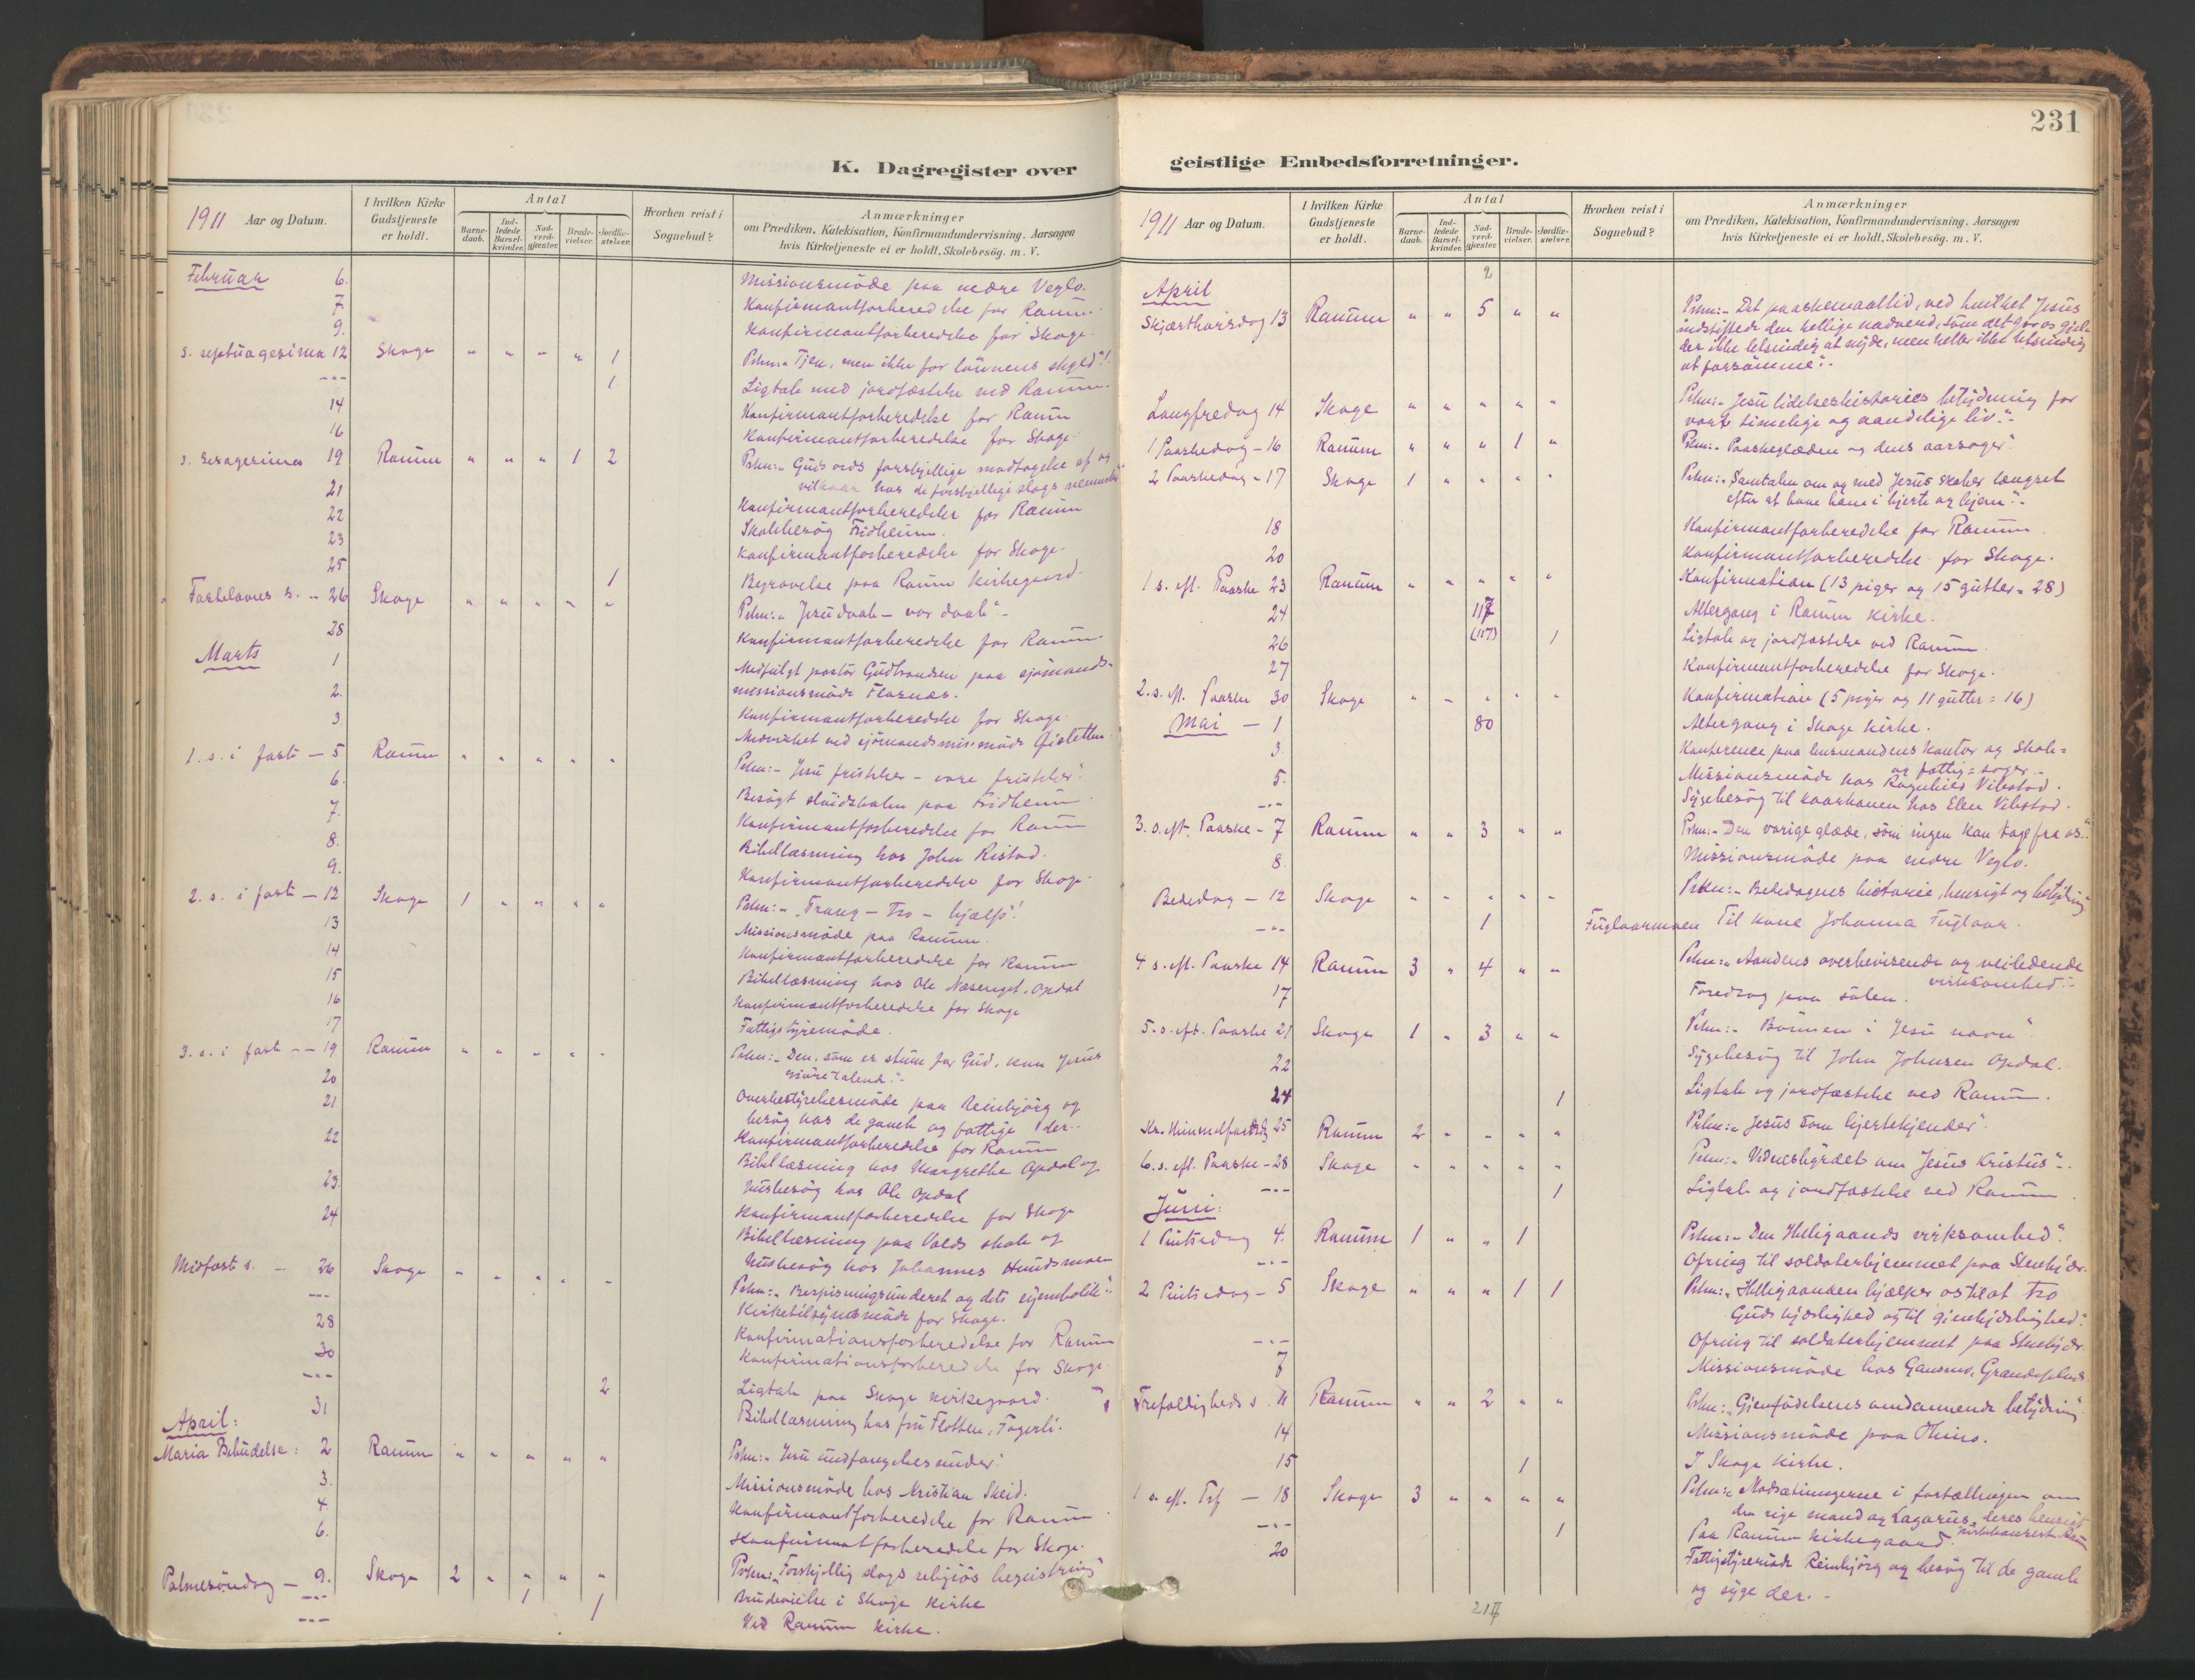 K. Dagregister over
1911 Aar og Datum.
I hvilken Kirke Gudstjeneste er holdt.
Antal
Barnedaab.
Indledede Barselkvinder.
Nadverdgjester.
Brudevielser.
Jordfæstelser.
Hvorhen reist i Sognebud?
Anmærkninger
om Prædiken, Katekisation, Konfirmandundervisning, Aarsagen
hvis Kirketjeneste ei er holdt, Skolebesög. m. V.
Februar 6. Missionsmöde paa nedre Veglo.
7 Konfirmantforberedelse for Ranum.
9. Konfirmantforberedelse for Skage.
s. septuagesima 12 Skage " " " " 1 Prkn:" Tjen, men ikke for lönnens skyld"!
-"- 1 Ligtale med jordfæstelse ved Ranum.
14 Konfirmantforberedelse for Ranum
16 Konfirmantforberedelse for Skage
s. sexagesima 19 Ranum " " " 1 2 Prkn:" Guds ords forskjellige modtagelse af og
vilkaar hos de forskjellige slags mennesker"
21 Konfirmantforberedelse for Ranum
22 Skolebesög Fridheim.
23 Konfirmantforberedelse for Skage.
25 1 Begravelse paa Ranum kirkegaard.
Fastelavns s. - 26 Skage " " " " " Prkn:" Jesu daab - vor daab".
28 Konfirmantforberedelse for Ranum.
Marts 1 Medfulgt pastor Gudbrandsen paa sjömands-
missionsmöde Flasnes.
2. Konfirmantforberedelse for Skage.
3. Medvirket ved sjömandsmis.möde
1. s. i faste - 5 Ranum " " " " " Prkn:" Jesu fristelser - vore fristelser".
6. Besögt slöidskolen paa Fridheim
7. Konfirmantforberedelse for Ranum
8. Bibellæsning hos John Ristad.
9. Konfirmantforberedelse for Skage
2. s. i faste - 12 Skage 1 " " " " Prkn:" "Trang - tro - hjælp"!
13 Missionsmöde paa Ranum.
14 Konfirmantforberedelse for Ranum
15 Bibellæsning hos Ole Næsenget, Opdal
16 Konfirmantforberedelse for Skage
17 Fattigstyremöde.
3. s. i faste - 19 Ranum " " " " " Prkn:" Den, som er stum for Gud, kan Jesus
gjöre talende".
20 Overbestyrelsesmöde paa Reinbjörg og
besög hos de gamle og fattige der.
21 Konfirmantforberedelse for Ranum
22 Bibellæsning hos Margrethe Opdal og
husbesög hos Ole Opdal
23. Konfirmantforberedelse for Skage
24 Bibellæsning paa Valds skole og
husbesög hos Johannes Hundsmoen
Midfaste s. - 26 Skage " " " " " Prkn:" Bespisningsunderet og dets symbolik".
-"- Kirketilsynsmöde for Skage.
28 Konfirmationsforberedelse for Ranum
30 Konfirmationsforberedelse for Skage.
-"- 2 Ligtale paa Skage kirkegaard.
31 Bibellæsning hos fru Flotten, Fagerli.
April:
Maria Bebudelse: 2 Ranum " " " " " Prkn:" Jesu undfangelsesunder"
3. Missionsmöde hos Kristian Skeid.
4 Konfirmantforberedelse for Ranum
6. Konfirmantforberedelse for Skage.
Palmesöndag - 9. Skage 2 " " " " Prkn:" Forskjellig slags religiös begeistring"
-"- 1 Brudevielse i Skage kirke
-"- 1 Ved Ranum kirke.
231
geistlige Embedsforretninger.
1911 Aar og Datum.
I hvilken Kirke Gudstjeneste er holdt.
Antal
Barnedaab.
Indledede Barselkvinder.
Nadverdgjester.
Brudevielser.
Jordfæstelser.
Hvorhen reist i Sognebud?
Anmærkninger
om Prædiken, Katekisation, Konfirmandundervisning, Aarsagen
hvis Kirketjeneste ei er holdt, Skolebesög. m. V.
2
April
Skjærthorsdag 13 Ranum " " 5 " " Prkn:" Det paaskemaaltid, ved hvilket Jesus
indstiftede den hellige nadverd, som det
der ikke letsindig at nyde, men heller ikke letsindig
at forsömme".
Langfredag 14 Skage " " " " " Prkn:" Jesu lidelseshistories betydning for
vort timelige og aandelige liv".
1 Paaskedag - 16 Ranum " " " 1 " Prkn:" Paaskeglæden og dens aarsager".
2 Paaskedag - 17 Skage 1 " " " " Prkn:" Samtalen om og med Jesus skaber længsel
efter at have ham i hjerte og hjem".
18 Konfirmantforberedelse for Ranum.
20 Konfirmantforberedelse for Skage.
1 s. eft. Paaske 23 Ranum " " " " " Konfirmation (13 piger og 15 gutter = 28)
24 117 Altergang i Ranum kirke.
26 (117) 1 Ligtale og jordfæstelse ved Ranum.
27 Konfirmantforberedelse for Skage.
2. s. eft. Paaske 30 Skage " " " " " Konfirmation (5 piger og 11 gutter = 16)
Mai - 1 80 Altergang i Skage kirke.
3. Konference paa lensmandens kontor ag skole=
og fattig=sager.
5. Missionsmöde hos Ragnhild Vibstad.
-"- Sygebesög til kaarkonen hos Elen Vibstad.
3. s. eft. Paaske - 7 Ranum " " 3 " " Prkn:" Den varige glæde, som ingen kan tage fra os".
8. Missionsmöde paa nedre Veglo.
Bededag - 12 Skage " " " " " Prkn:" Bededagens historie, hensigt og betydning"
-"- 1 Fuglaarmoen Til kone Johanna Fuglaar.
4 s. eft. Paaske 14 Ranum 3 " 4 " " Prkn:" Aandens overbevisende og veiledende
virksomhed".
17 Foredrag paa salen.
5. s. eft. Paaske 21 Skage 1 " 3 " " Prkn:" Bönnen i Jesu navn".
22 Sygebesög til John Johnsen Opdal.
24 1 Ligtale og jordfæstelse ved Ranum.
Kr. Himmelfartsdg 25 Ranum 2 " " " " Prkn:" Jesus som hjertekjender".
6. s. eft. Paaske - 28 Skage " " " " " Prkn:" Vidnesbyrdet om Jesus Kristus".
-"- 1 Ligtale og jordfæstelse ved Ranum.
Juni:
1 Pintsedag 4. Ranum 1 " " 1 Prkn:" Den Helligaands virksomhed".
-"- Ofring til soldaterhjemmet paa Stenkjær.
2 Pintsedag - 5 Skage " " " 1 1 Prkn:" Helligaanden hjælper os til at tro
Guds kjærlighed og til gjenkjærlighed".
-"- Ofring til soldaterhjemmet paa Stenkjær.
7 Missionsmöde hos
Trefoldigheds s. 11 Ranum " " 2 " " Prkn:" Gjenfödelsens omdannende betydning"
14 Missionsmöde paa Himo.
15 1 I Skage kirke.
1 s. eft. Trf - 18 Skage 3 " " " " Prkn:" Modsætningerne i fortællingen om
den rige mand og Lazarus, deres hensigt
-"- 1 Paa Ranum kirkegaard.
20 Fattigstyremöde Reinbjörg og besög til de gamle
og syge der.
217